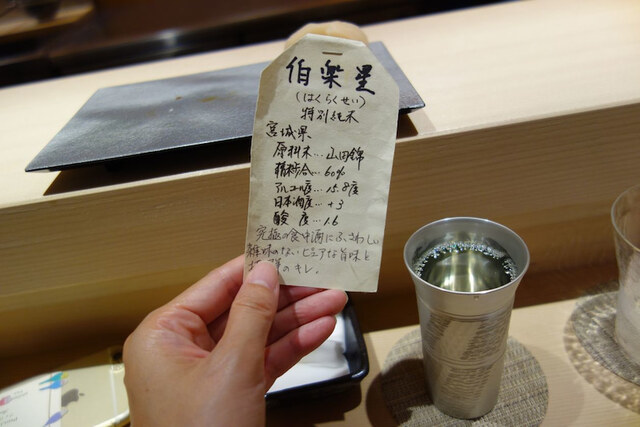 伯楽星
(はくらくせい)
特別純米
宮城県、
原料米…山田錦
精米歩合…60%
アルコール度…15.8度
日本酒度…+3
酸 度…1.6
究極の食中酒にふさわしい
雑味のないピュアな旨味と
のキレ。